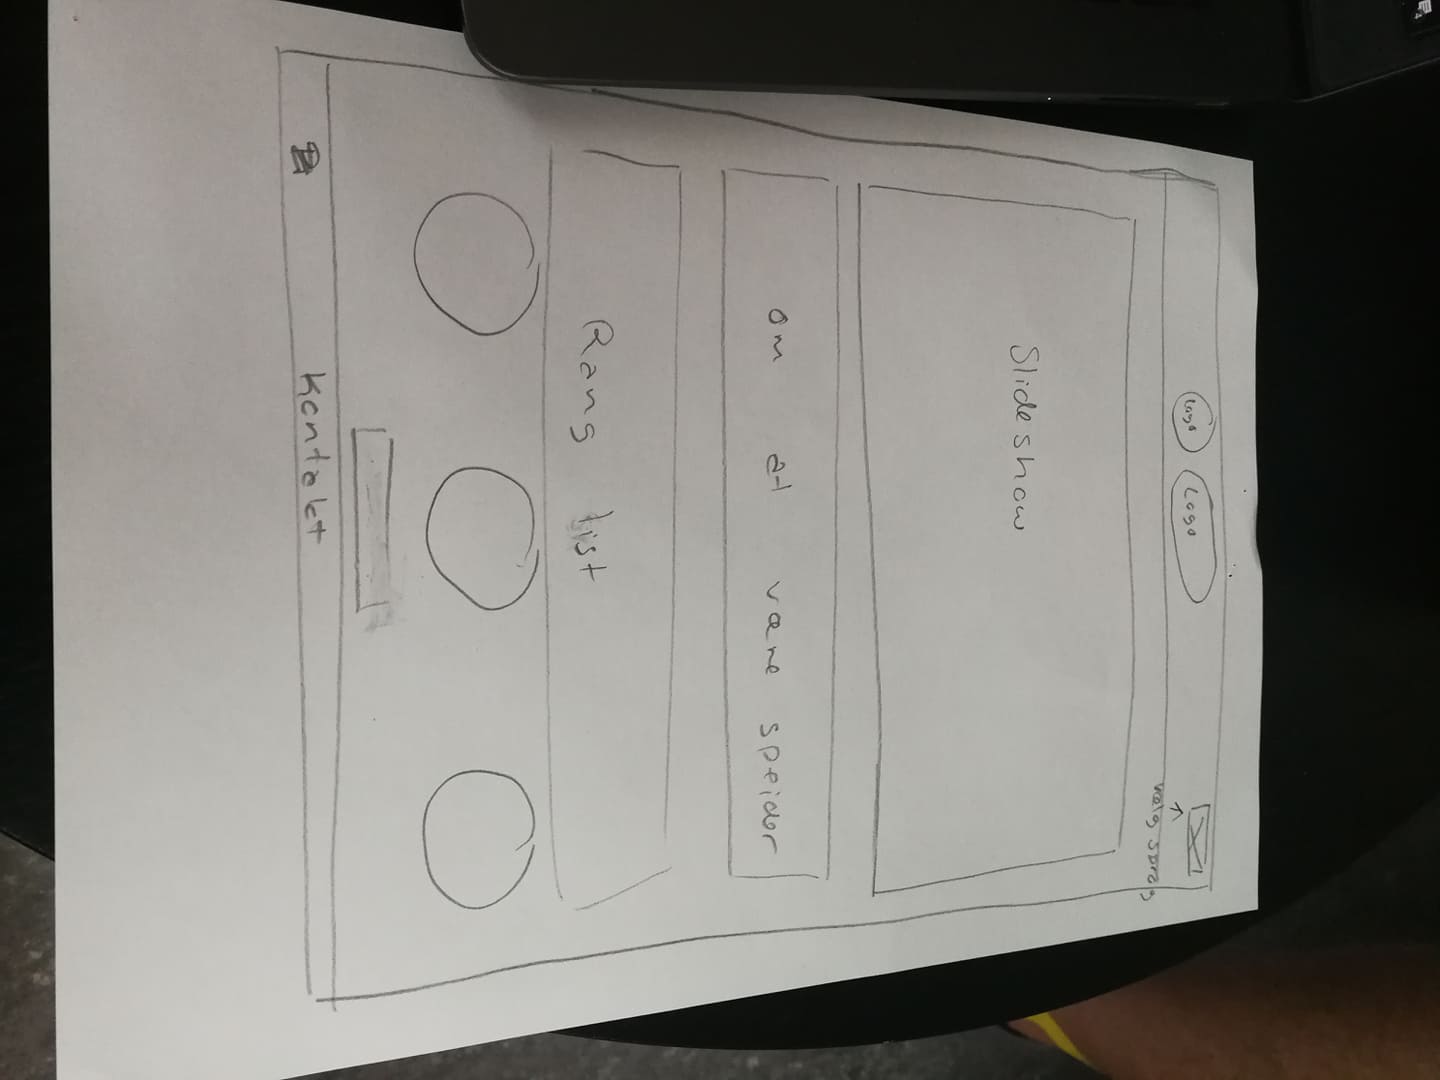 Logo Logo
velg språg
Slideshow
om at være speider
Rang list
Kontakt